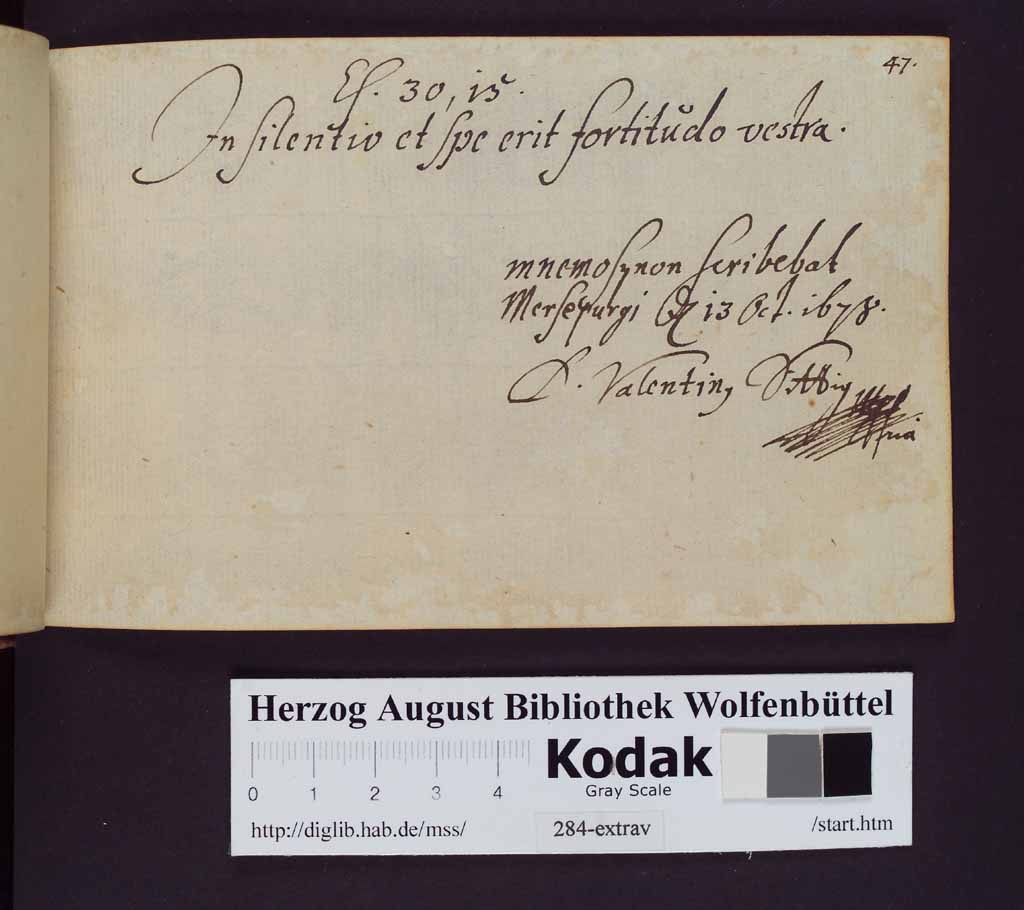 47.
Es. 30, 15.
In silentio et spe erit fortitudo vestra.
mnemosynon scribebat
Mersepurgi 13 Oct. 1678.
D. Valentin9 Sittig
mpria
Herzog August Bibliothek Wolfenbüttel
0 1 2 3 4
Kodak
Gray Scale
http://diglib.hab.de/mss/ 284-extrav /start.htm